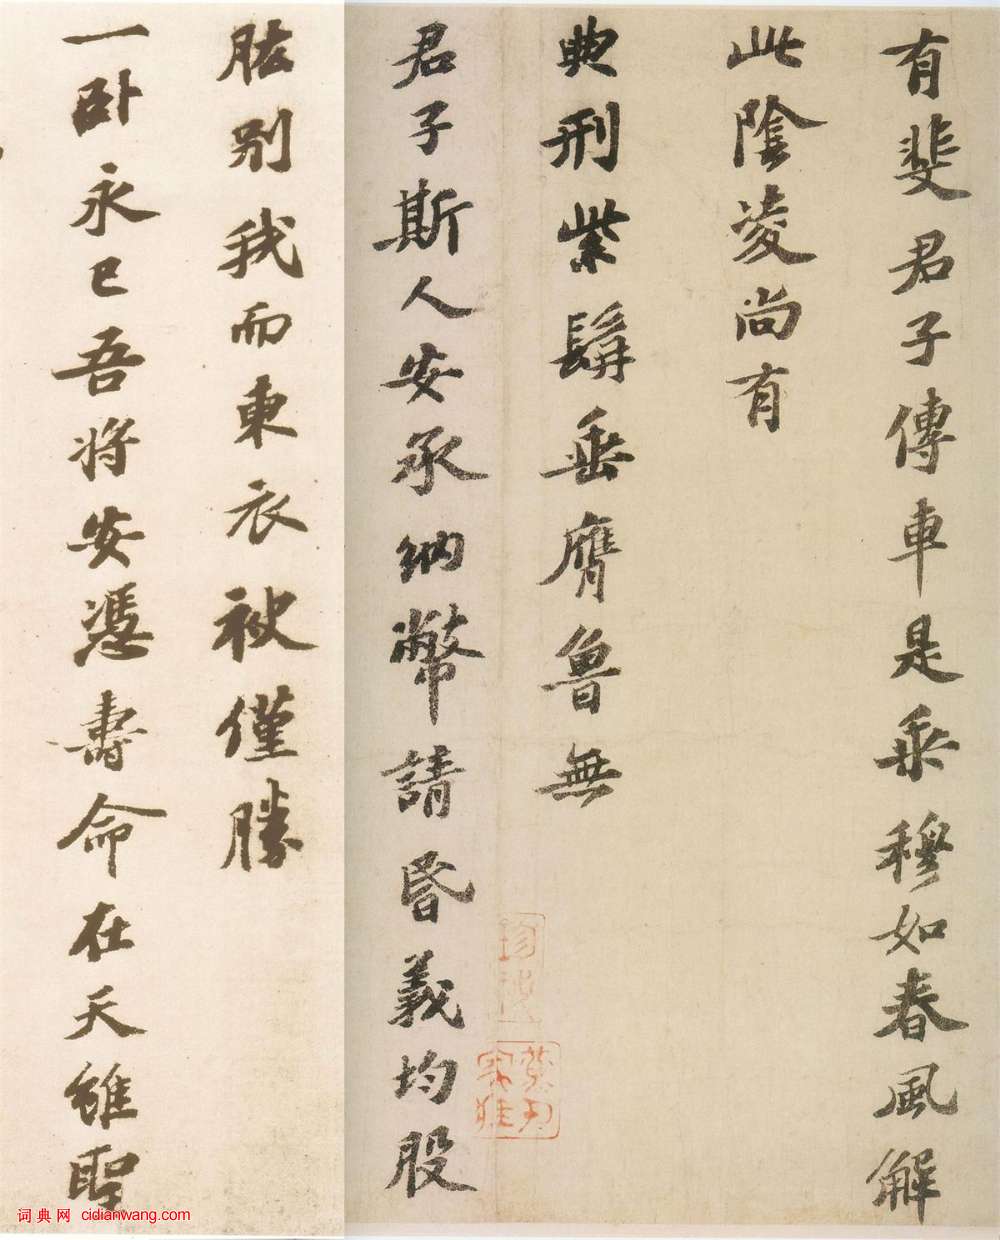 有斐君子傳車是乘穆如春風解
此陰凌尚有
典刑紫髯垂膺魯無
君子斯人安承納幣請昏義均股
肱別我而東衣袂僅勝
一卧永已吾將安憑壽命在天雖聖
词典网 cidianwang.com